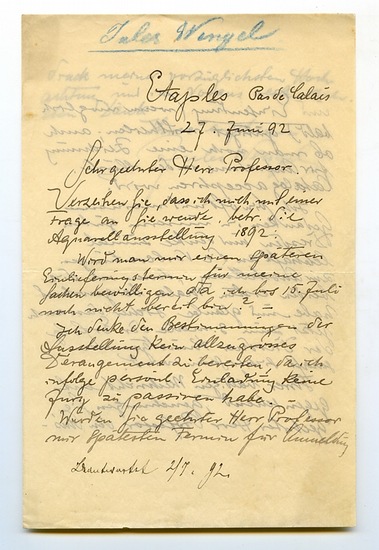 Jules Wengel
Etaples Pas de Calais
27. Juni 92
Sehr geehrter Herr Professor.
Verzeihen Sie, dass ich mich mit einer
Frage an Sie wende, betr. die
Aquarellausstellung 1892:
Wird man mir einen späteren
Einlieferungstermin für meine
Sachen bewilligen da ich bis 15. Juli
noch nicht bereit bin? –
Ich denke den Bestimmungen der
Ausstellung kein allzugrosses
Derangement zu bereiten, da ich
infolge persönl. Einladung keine
Jury zu passiren habe. –
Würden Sie geehrter Herr Professor
mir spätesten Termin für Anmeldung
Beantwortet 2/7. 92.